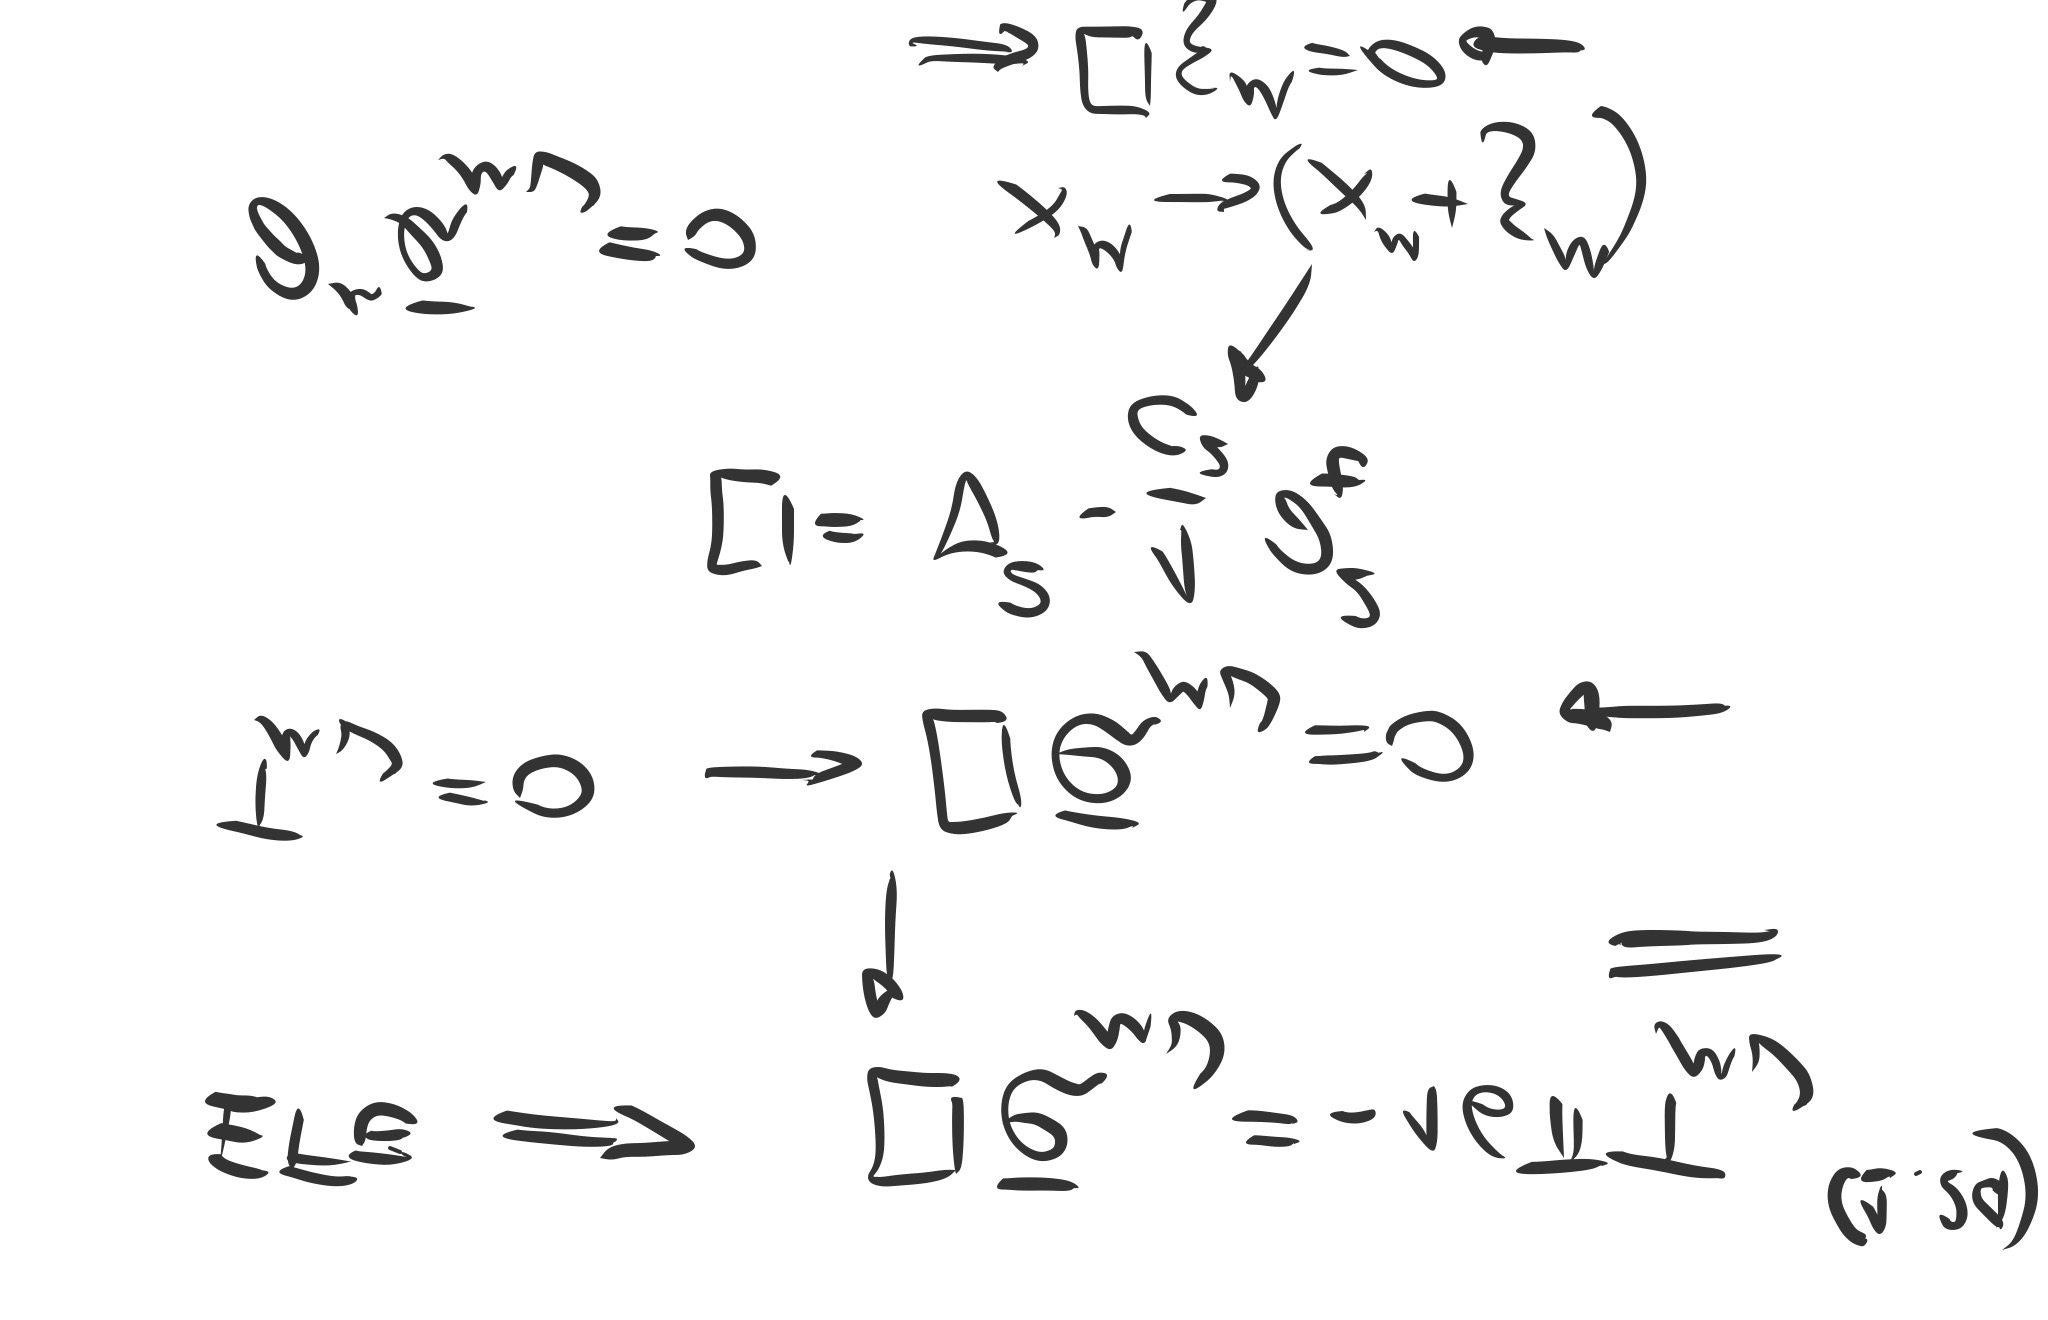 EFE ⟹ □ h̄_μν = -16πT_μν (1.24)
T_μν = 0 → □ h̄_μν = 0 ←
□ = ∇² - 1/c² ∂_t²
∂^μ h̄_μν = 0 x^μ → (x^μ + ξ^μ)
⟹ □ ξ^μ = 0 ←